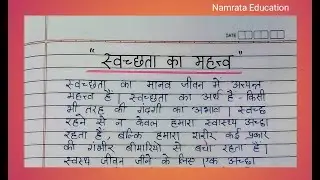 Namrata Education
DATE
"स्वच्छता का महत्त्व"
स्वच्छता का मानव जीवन में अत्यन्त
महत्त्व है। स्वच्छता का अर्थ है - किसी
भी तरह की गंदगी का अभाव। स्वच्छ
रहने से न केवल हमारा स्वास्थ्य अच्छा
रहता है, बल्कि हमारा शरीर कई प्रकार
की गंभीर बीमारियों से बचा रहता है।
स्वस्थ जीवन जीने के लिए एक अच्छा